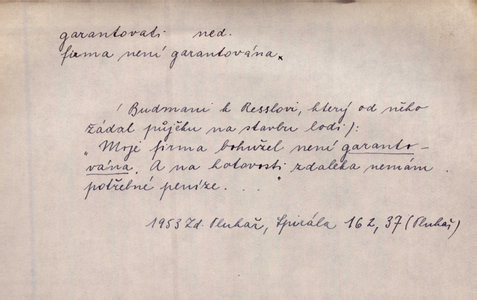 garantovati ned.
firma není garantována.
/ Budmani k Resslovi, který od něho
žádal půjčku na stavbu lodi /:
"Moje firma bohužel není garanto-
vána. A na hotovosti zdaleka nemám
potřebné peníze. . . . "
1953 Zd. Pluhař, Spirála 162, 37 (Pluhař)